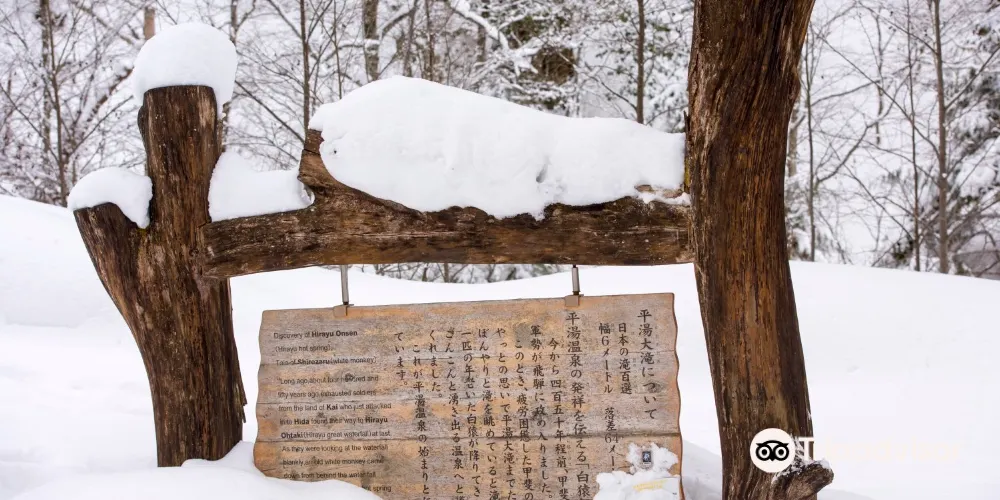 Discovery of Hirayu Onsen
(Hirayu hot spring)
Tale of Shirozaru(white monkey)
"Long ago about four hundred and
fifty years ago exhausted soldiers
from the land of Kai who just attacked
in to Hida found their way to Hirayu
Ohtaki(Hirayu great waterfall) at last.
As they were looking at the waterfall
blankly an old white monkey came
down from behind the waterfall
spring
平湯大滝について
日本の滝百選
幅6メートル 落差
平湯温泉の発祥を伝える「白猿
今から四百五十年程前、甲斐
軍勢が飛騨に攻め入りました。
このとき、疲労困憊した甲斐の
やっとの思いで平湯大滝までた
ぼんやりと滝を眺めていると滝
一匹の年老いた白猿が降りてき
こんこんと湧き出る温泉へと
くれました。
これが平湯温泉の始まりと
ています。